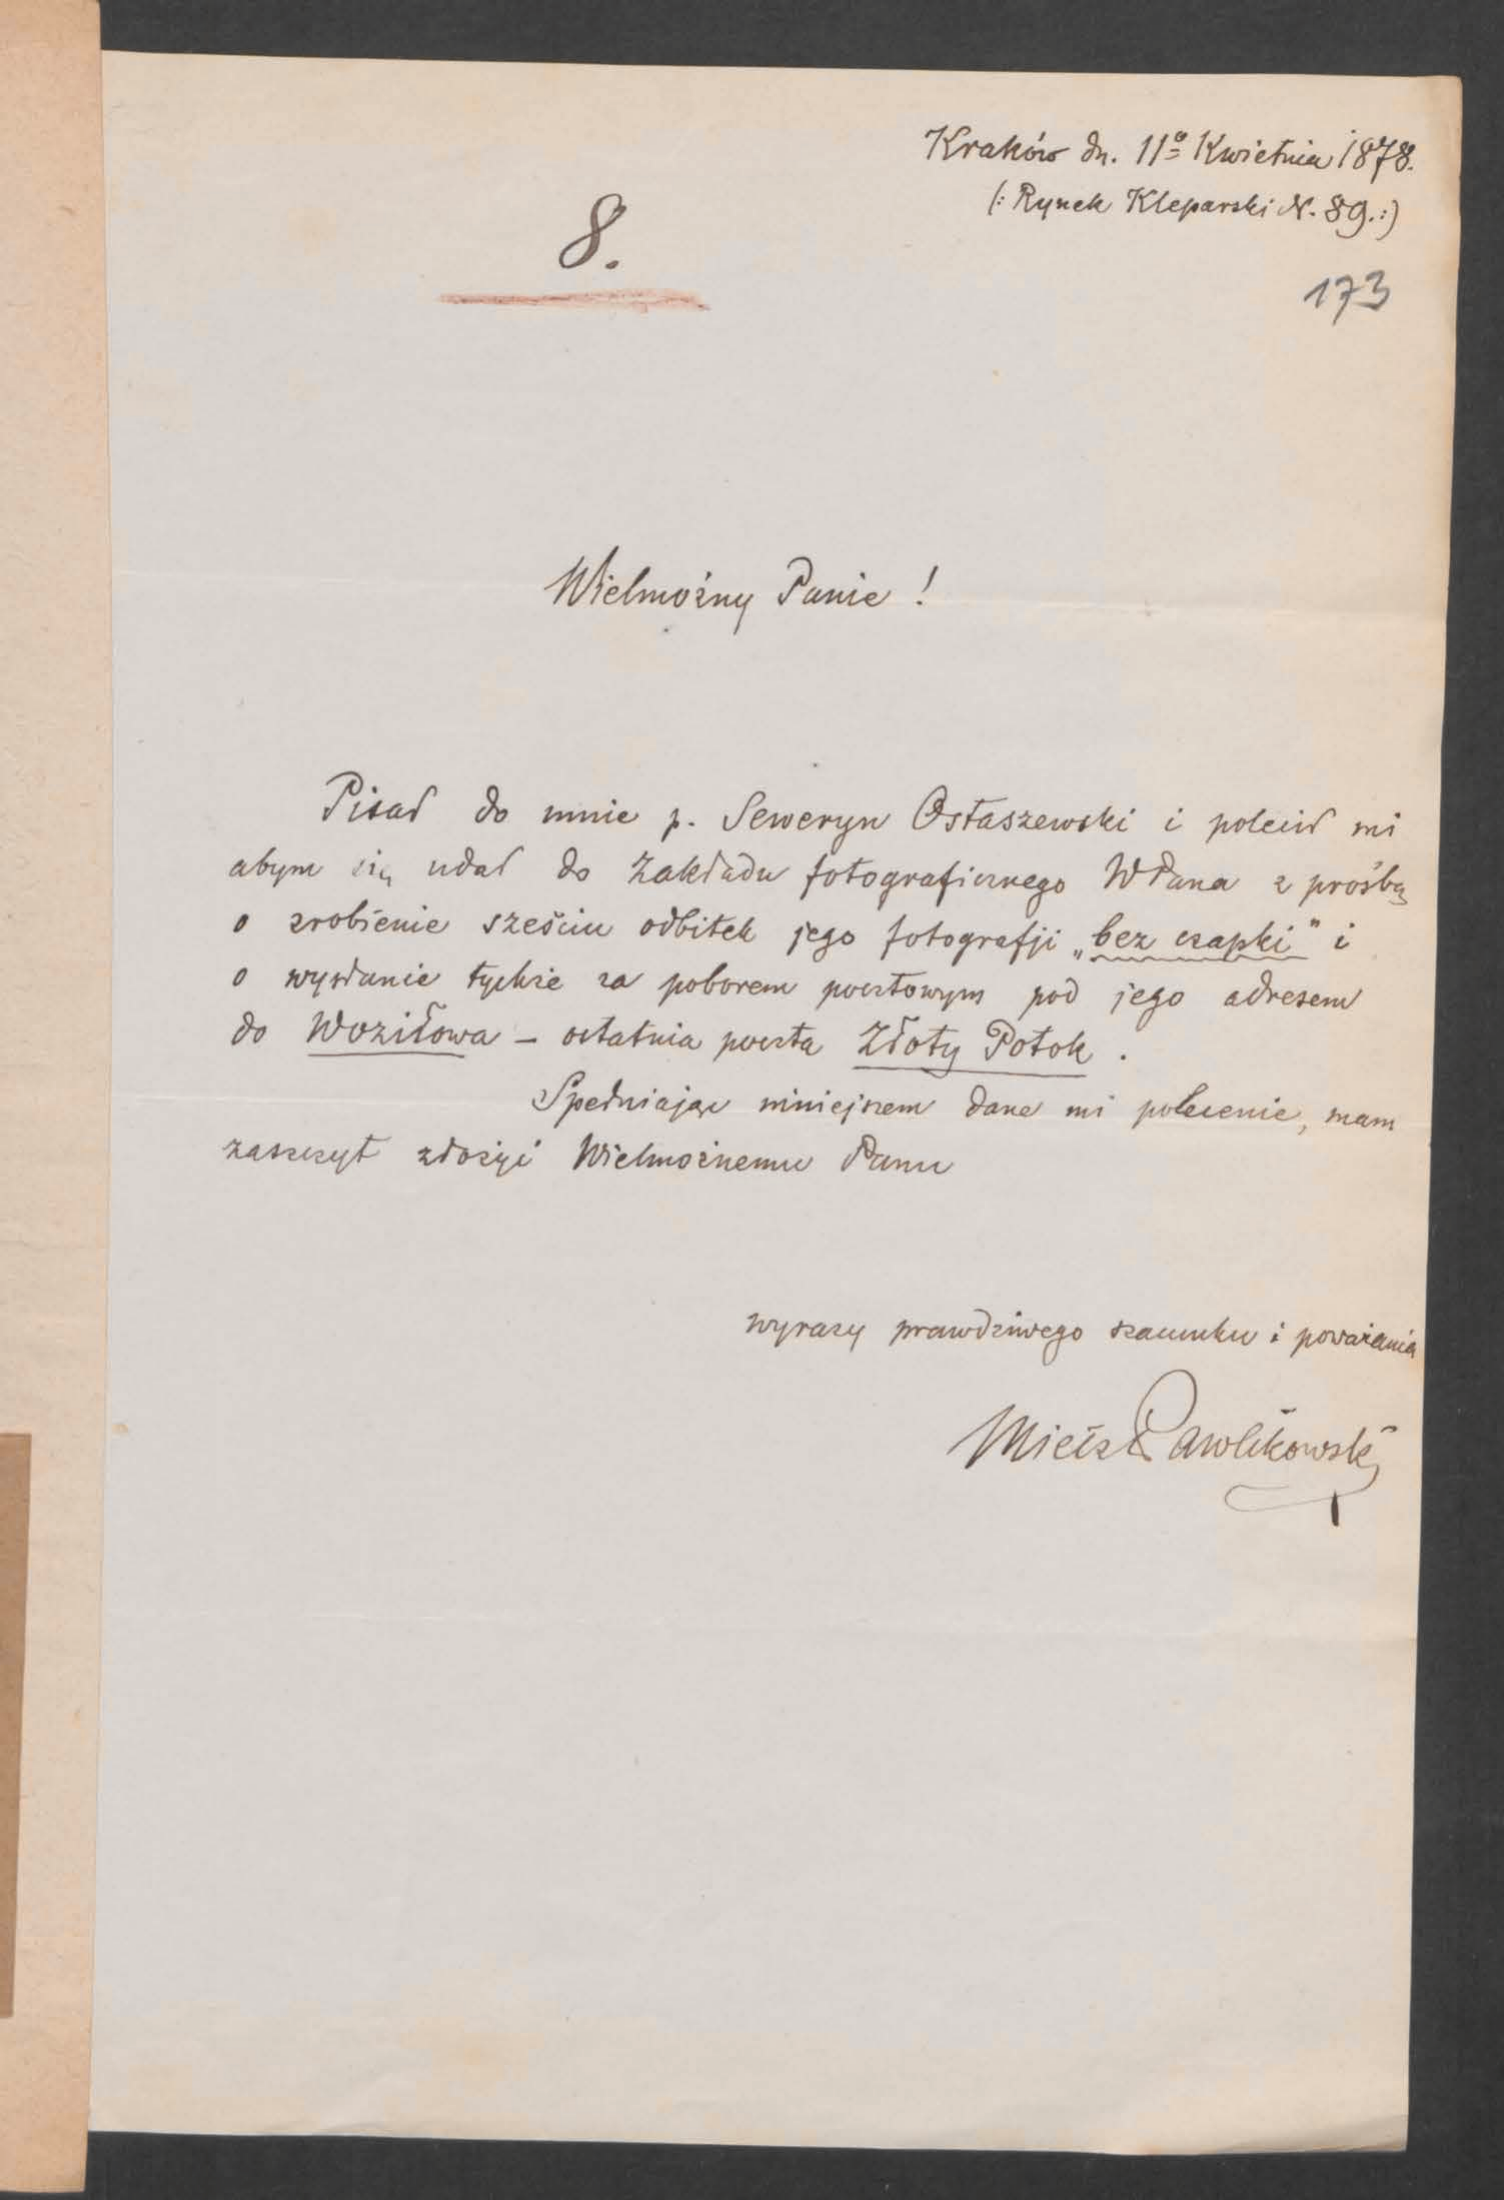 Kraków dn. 11º Kwietnia 1878.
(: Rynek Kleparski N. 89. :)
8.
173
Wielmożny Panie !
Pisał do mnie p. Seweryn Ostaszewski i polecił mi
abym się udał do Zakładu fotograficznego WPana z prośbą
o zrobienie sześciu odbitek jego fotografji „bez czapki" i
o wysłanie tychże za poborem pocztowym pod jego adresem
do Woziłowa – ostatnia poczta Złoty Potok .
Spełniając niniejszem dane mi polecenie, mam
zaszczyt złożyć Wielmożnemu Panu
wyrazy prawdziwego szacunku i poważania
Miecz Pawlikowski